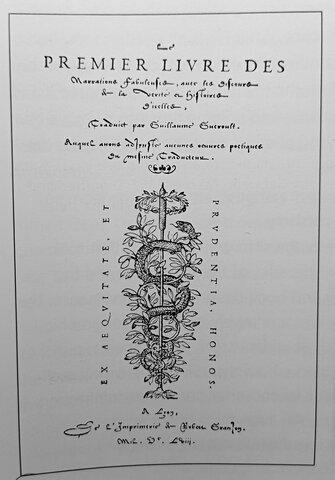 Le
PREMIER LIVRE DES
Narrations fabuleuses, avec les discours
de la verité et histoires
d'icelles,
Traduict par Guillaume Gueroult.
Auquel avons adjousté aucunes oeuvres poëtiques
du mesme Traducteur.
EX AEQVITATE, ET
PRVDENTIA, HONOS.
A Lyon,
De l'Imprimerie de Robert Granjon.
Mil. Vc. Lviii.